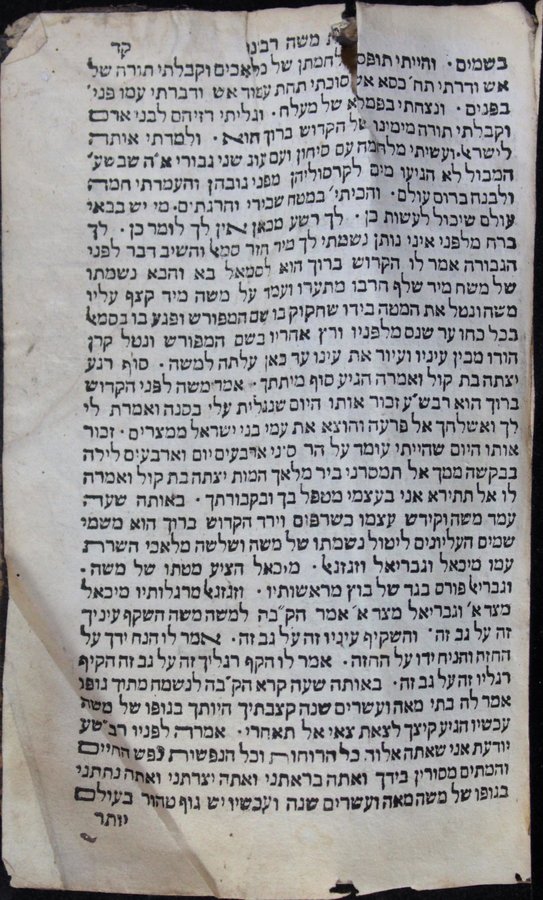 משה רבנו קד
בשמים · והייתי תופס לחמתן של מלאכים וקבלתי תורה של
אש ודרתי תח׳ כסא אש סוכתי תחת עמוד אש ודברתי עמו פני׳
בפנים · ונצחתי בפמליא של מעלה · וגליתי רזיהם לבני אדם
וקבלתי תורה מימינו של הקדוש ברוך הוא · ולמדתי איתה
לישראל · ועשיתי מלחמה עם סיחון ועם עוג שני גבורי א״ה שבשע׳
המבול לא הגיעו מים לקרסוליהן מפני גובהן והעמדתי חמה
ולבנה ברום עולם · והכיתי׳ במטה שבידי והרגתים · מי יש בבאי
עולם שיכול לעשות כן · לך רשע מכאן אין לך לומר כן · לך
ברח מלפני איני נותן נשמתי לך מיד חזר סמאל והשיב דבר לפני
הגבורה אמר לו הקדוש ברוך הוא לסמאל בא והבא נשמתו
של משה מיד שלף חרבו מתערו ועמד על משה מיד קצף עליו
משה ונטל את המטה בידו שחקוק בו שם המפורש ופגע בו בסמאל
בכל כחו עד שנס מלפניו ורץ אחריו בשם המפורש ונטל קרן
הודו מבין עיניו ועיור את עינו עד כאן עלתה למשה · סוף רגע
יצתה בת קול ואמרה הגיע סוף מיתתך · אמר משה לפני הקדוש
ברוך הוא רבש״ע זכור אותו היום שנגלית עלי בסנה ואמרת לי
לך ואשלחך אל פרעה והוצא את עמי בני ישראל ממצרים · זכור
אותו היום שהייתי עומד על הר סיני ארבעים יום וארבעים לילה
בבקשה ממך אל תמסרני ביד מלאך המות יצתה בת קול ואמרה
לו אל תתירא אני בעצמי מטפל בך ובקבורתך · באותה שעה
עמד משה וקידש עצמו כשרפים וירד הקדוש ברוך הוא משמי
שמים העליונים ליטול נשמתו של משה ושלשה מלאכי השרת
עמו מיכאל וגבריאל וזגזגאל · מיכאל הציע מטתו של משה ·
וגבריאל פורס בגד של בוץ מראשותיו · וזגזגאל מרגלותיו מיכאל
מצד א׳ וגבריאל מצד א׳ אמר הק״בה למשה משה השקף עיניך
זה על גב זה · והשקיף עיניו זה על גב זה · אמר לו הנח ידך על
החזה והניח ידו על החזה · אמר לו הקף רגליך זה על גב זה הקיף
רגליו זה על גב זה · באותה שעה קרא הק״בה לנשמה מתוך גופו
אמר לה בתי מאה ועשרים שנה קצבתיך היותך בגופו של משה
עכשיו הגיע קיצך לצאת צאי אל תאחרי · אמרה לפניו רב״שע
יודעת אני שאתה אלוה כל הרוחות וכל הנפשות נפש החיים
והמתים מסורין בידך ואתה בראתני ואתה יצרתני ואתה נתתני
בגופו של משה מאה ועשרים שנה ועכשיו יש גוף טהור בעולם
יותר